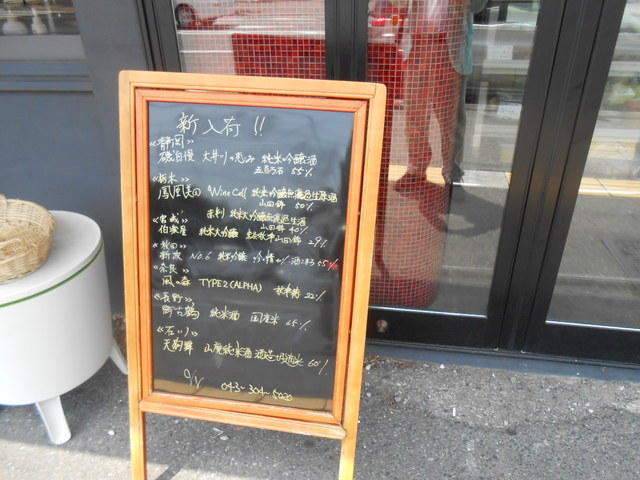 新入荷!!
《静岡》
磯自慢 大井川の恵み 純米吟醸酒
五百万石 55%
《栃木》
鳳凰美田 Wine Cell 純米吟醸無濾過生原酒
山田錦 50%
《宮城》 純米大吟醸無濾過生酒
山田錦 40%
伯楽星 純米大吟醸 山田錦 29%
《秋田》
新政 No.6 純米吟醸
《奈良》
風の森 TYPE2(ALPHA) 秋津穂 22%
《長野》
町古鶴 純米酒 国産米 65%
《石川》
天狗舞 山廃純米酒 酒造好適米 60%
043-304-5020